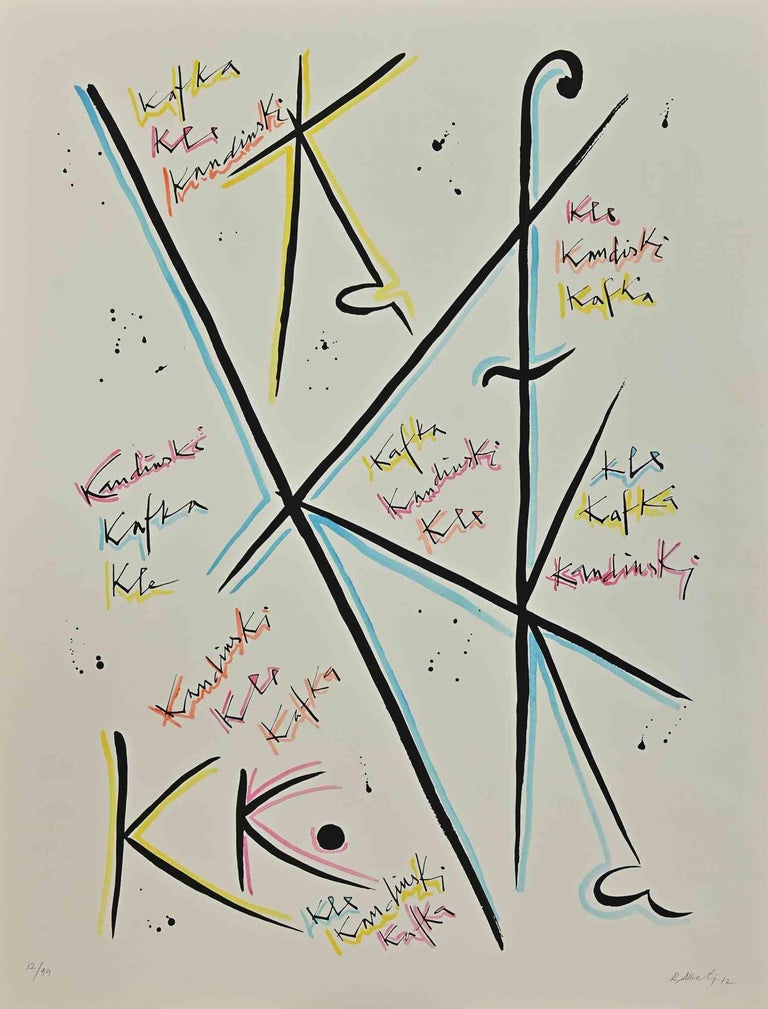 Kafka
Kle
Kandinski
Kle
Kandiski
Kafka
Kafka
Kandinski
Kle
Kandinski
Kafka
Kle
Kle
Kafka
Kandinski
Kandinski
Kle
Kafka
K K.
Kle
Kandinski
Kafka
12/99